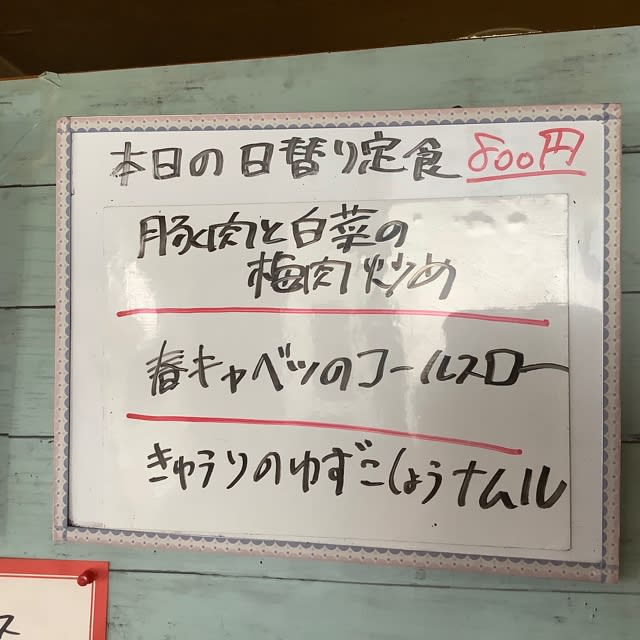 本日の日替り定食 800円
豚肉と白菜の
梅肉炒め
春キャベツのコールスロー
きゅうりのゆずこしょうナムル
ス